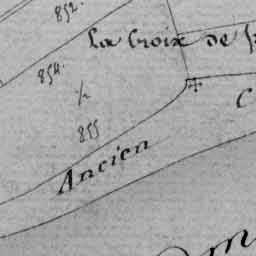 852.
La Croix de
854.
855
C
Ancien
m